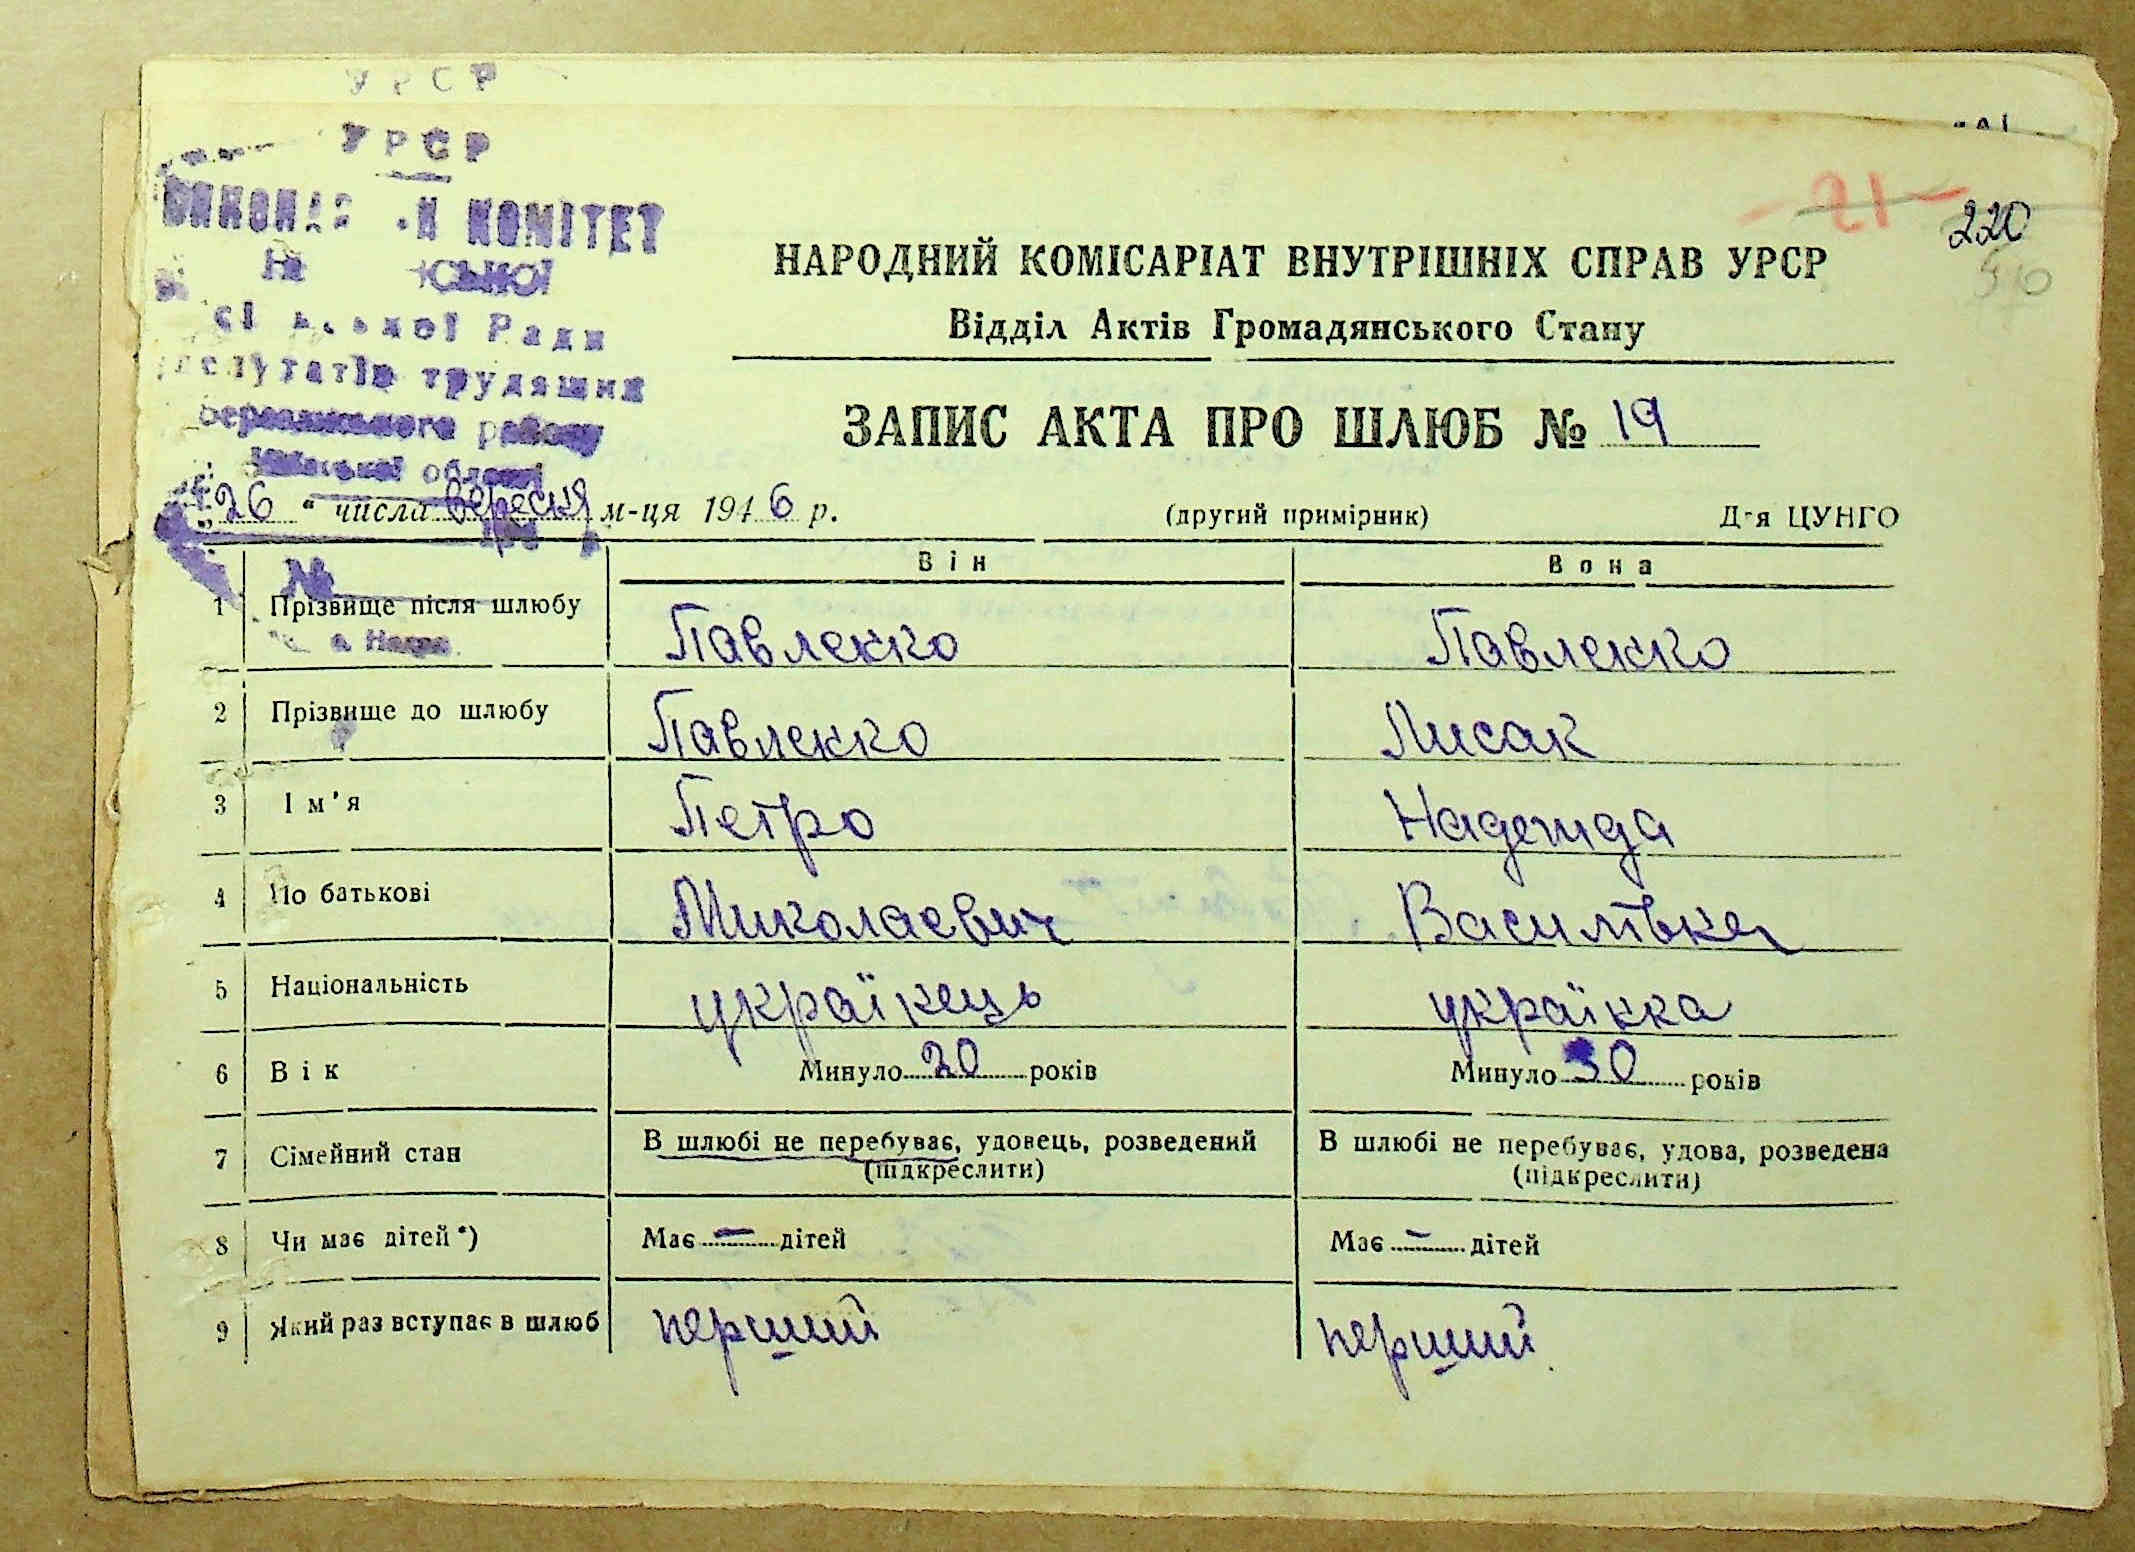 УРСР
УРСР
КОМІТЕТ
Ради
депутатів трудящих
220
21
50
НАРОДНИЙ КОМІСАРІАТ ВНУТРІШНІХ СПРАВ УРСР
Відділ Актів Громадянського Стану
ЗАПИС АКТА ПРО ШЛЮБ № 19
„26“ числа вересня м-ця 1946 р. (другий примірник) Д-я ЦУНГО
Він Вона
№
1 Прізвище після шлюбу Павленко Павленко
2 Прізвище до шлюбу Павленко Лисак
3 Ім'я Петро Надежда
4 По батькові Миколаевич Василівна
5 Національність українець українка
6 Вік Минуло 20 років Минуло 30 років
7 Сімейний стан В шлюбі не перебуває, удовець, розведений В шлюбі не перебуває, удова, розведена
(підкреслити) (підкреслити)
8 Чи має дітей*) Має — дітей Має — дітей
9 Який раз вступає в шлюб перший перший